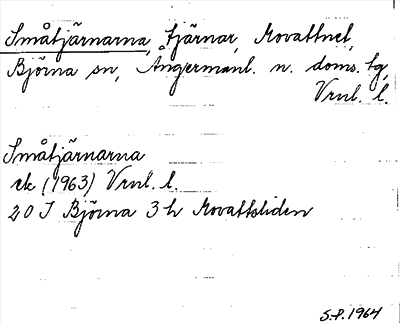 Småtjärnarna, tjärnar, Movattnet,
Björna sn, Ångermanl. n. doms. tg,
Vrnl. l.
Småtjärnarna
ek (1963) Vrnl. l.
20 I Björna 3 h Movattsliden
S.P. 1964